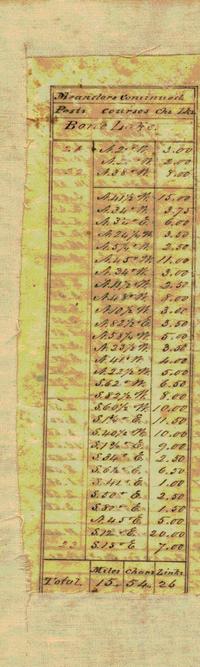 Meanders Continued
Posts Courses Chs Lks
Lake.
21 N. 2° W. 3.00
N. 2.00
N. 38° W. 7.00
N. 41½ W. 15.00
N. 34° 3.75
N. 3 E. 6.00
N. 24½ W. 3.50
N. 5 W. 2.50
N. 45° W. 11.00
N. 34° W. 3.00
N. 11½ W. 2.50
N. 48° W. 8.00
N. 10½ W. 3.00
N. 82½ E. 3.50
N. 5 W. 5.00
N. 23½ W. 3.50
N. 41° W. 1.00
N. 22½ W. 5.00
S. 62° W. 6.50
S. 82½ W. 8.00
S. 60½ W. 10.00
S. 1 E. 11.50
S. 40½ W. 10.00
S. E. 9.00
S. 34° E. 2.50
S. 6½ E. 6.50
S. 41° E. 1.00
S. 20° E. 2.50
S. 80° E. 1.50
N. 45° E. 5.00
S. 12° E. 20.00
22 S. 15° E. 7.00
Miles Chains Links
Total. 15. 54. 26